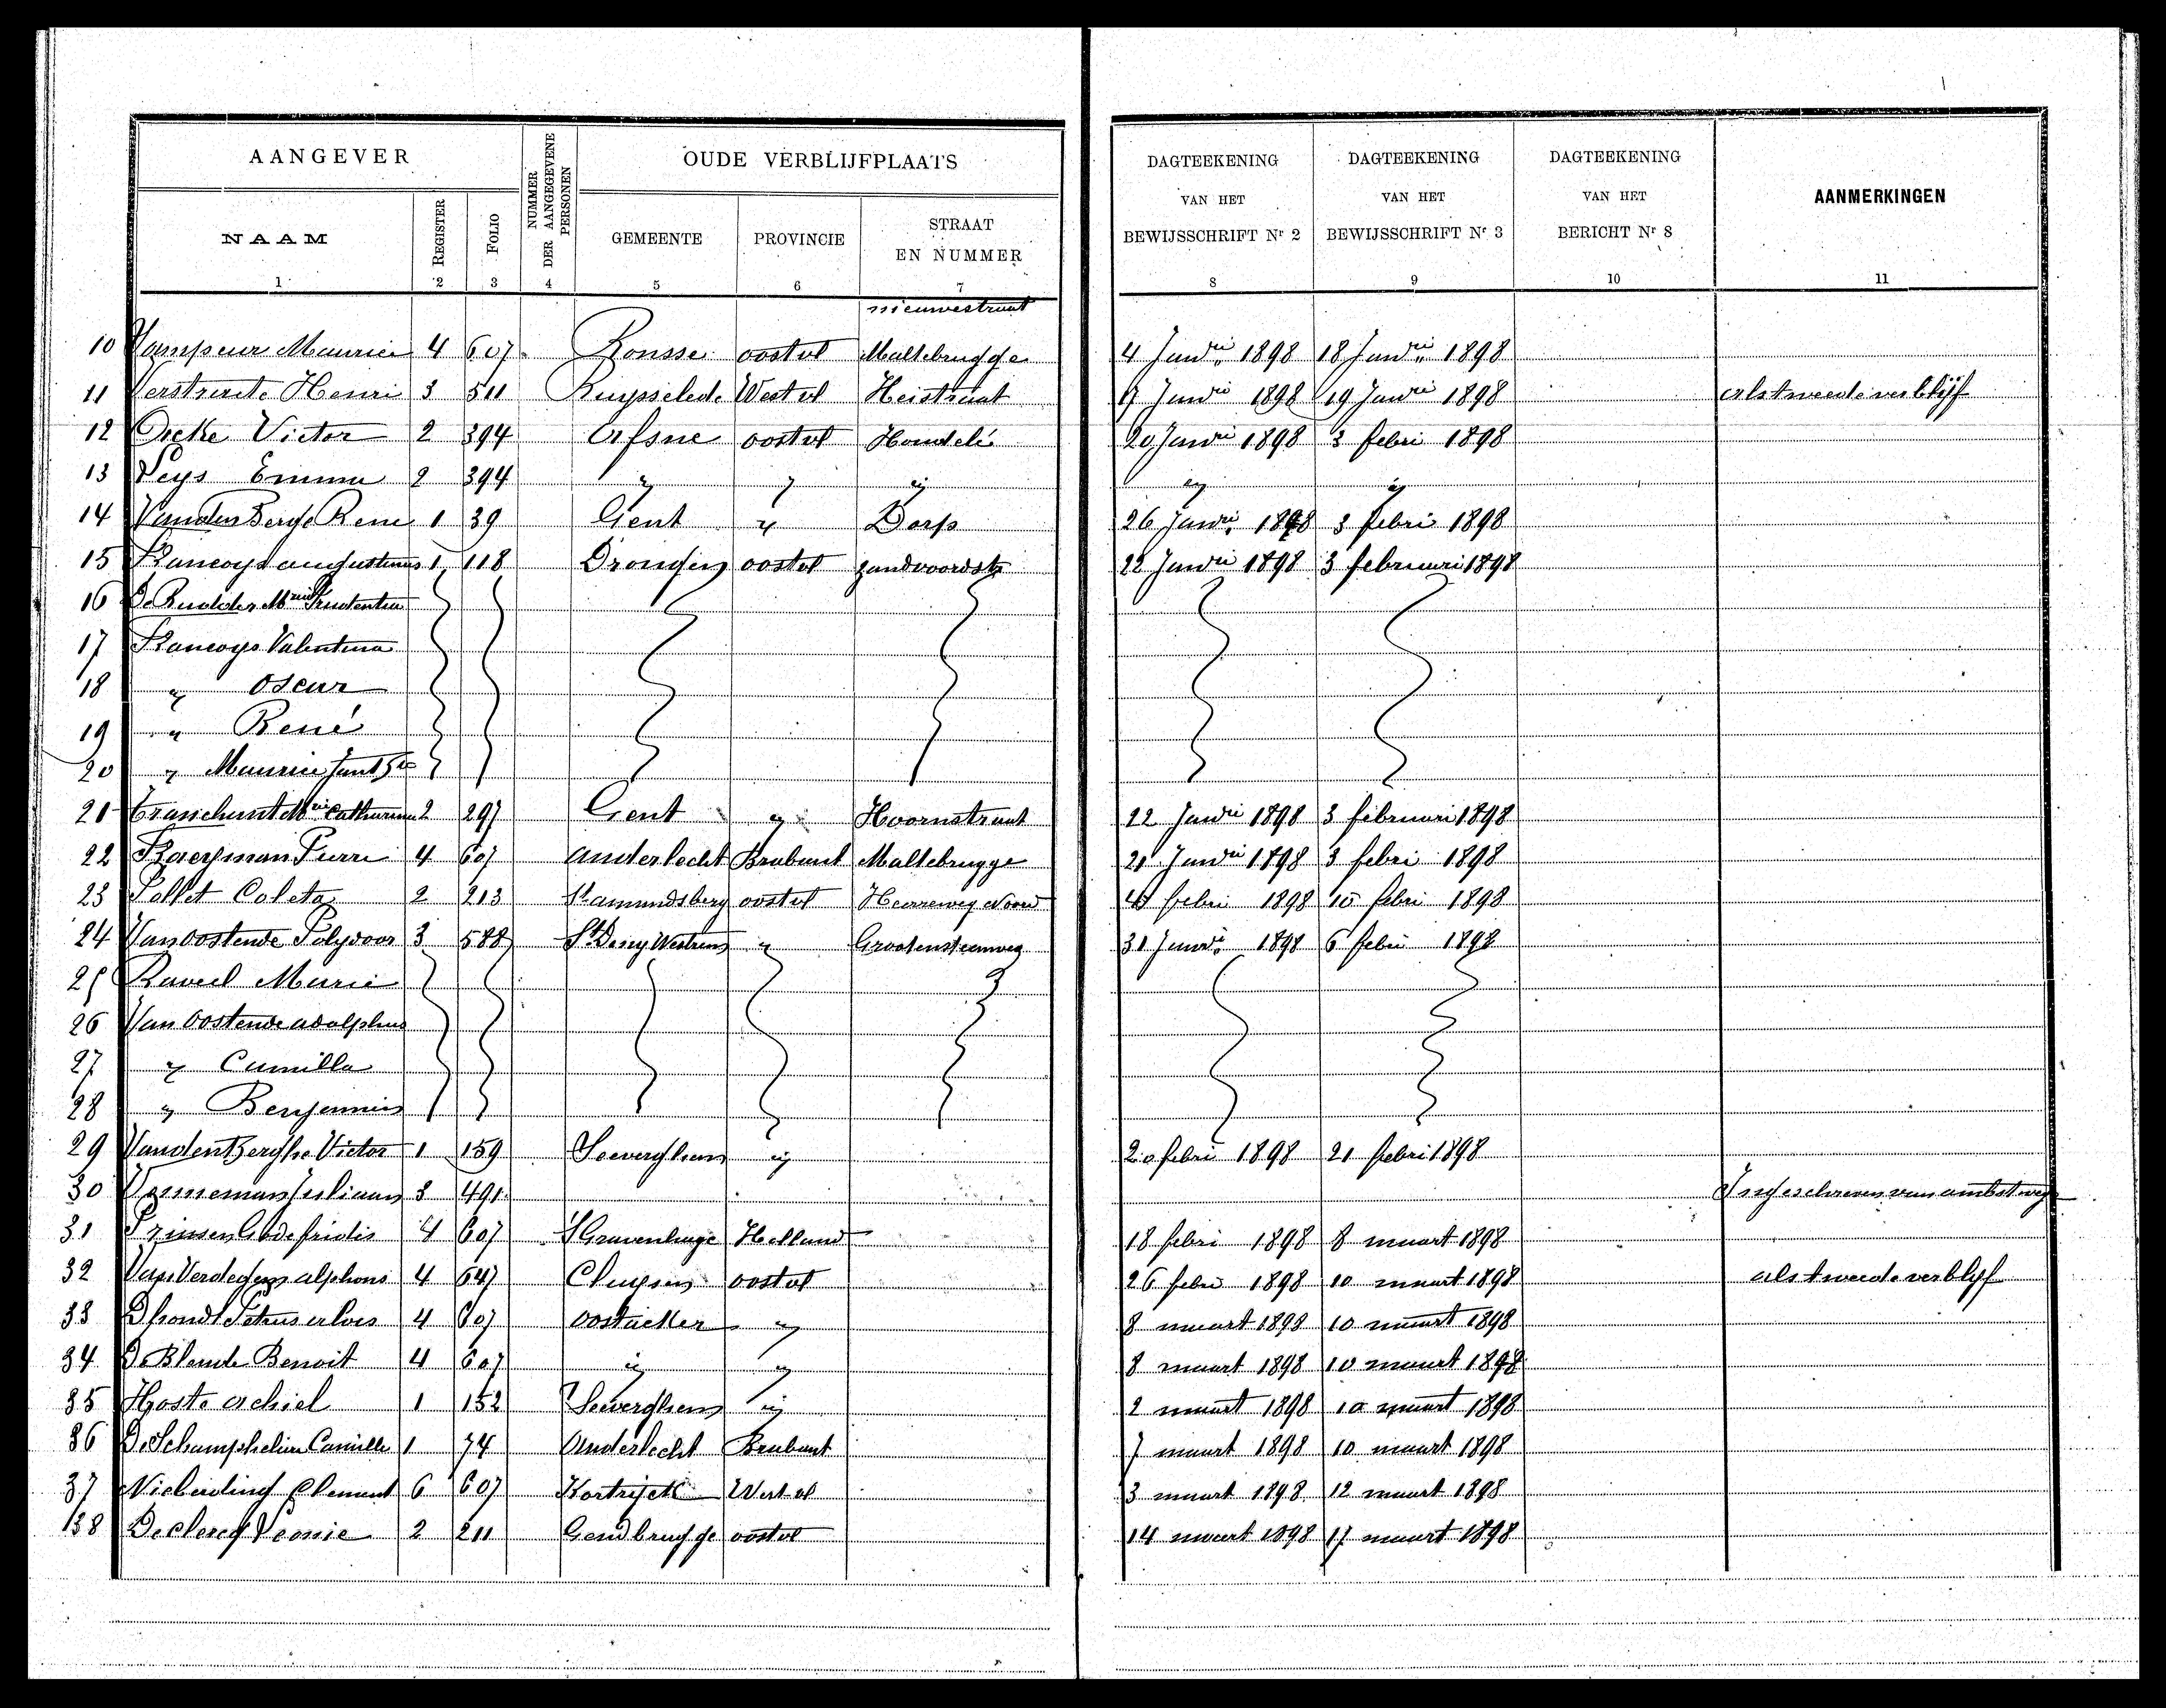 AANGEVER
NUMMER DER AANGEGEVENE PERSONEN
OUDE VERBLIJFPLAATS
DAGTEEKENING VAN HET BEWIJSSCHRIFT Nr 2
DAGTEEKENING VAN HET BEWIJSSCHRIFT Nr 3
DAGTEEKENING VAN HET BERICHT Nr 8
AANMERKINGEN
NAAM REGISTER FOLIO GEMEENTE PROVINCIE STRAAT EN NUMMER
1 2 3 4 5 6 7 8 9 10 11
nieuwestraat
10 Maurice 4 607 Ronsse oostvl Maltebrugge 4 Janrii 1898 18 Janrii 1898
11 Verstraete Henri 3 511 Ruysselede Westvl Heistraat 1898 19 Janrii 1898 als tweede verblijf
12 Victor 2 394 Afsne oostvl 20 Janrii 1898 3 febri 1898
13 Neys Emma 2 394 " " " " "
14 Vanden Berge Rene 1 39 Gent " Dorp 26 Janrii 1898 3 febri 1898
15 augustinus 1 118 Drongen oostvl zandvoordstr 22 Janrii 1898 3 februari 1898
16 De Rudder Mrie Prudentia
17 Valentina
18 " Oscar
19 " René
20 " Maurice
21 Mrie Catharina 2 297 Gent " Hoornstraat 22 Janrii 1898 3 februari 1898
22 Pierre 4 607 anderlecht Brabant Maltebrugge 21 Janrii 1898 3 febri 1898
23 Coleta 2 213 St amandsberg oostvl Heerweg Noord febri 1898 10 febri 1898
24 Van oostende Polydoor 3 588 St Denys Westrem " Grootensteenweg 31 Janrii 1898 6 febri 1898
25 Raveel Marie
26 Van Oostende adolphus
27 " Camilla
28 " Benjamin
29 Vanden Berghe Victor 1 159 Seeverghem " 20 febri 1898 21 febri 1898
30 Juliaan 3 491 Ingeschreven van ambtswege
31 Prinsen Godefridis 4 607 S'Gravenhage Holland 18 febri 1898 8 maart 1898
32 Van Verdegem alphons 4 647 Cluysen oostvl 26 febri 1898 10 maart 1898 als tweede verblyf
33 Dhondt Petrus alois 4 607 oostacker " 8 maart 1898 10 maart 1898
34 De Blende Benoit 4 607 " " 8 maart 1898 10 maart 1898
35 Hoste achiel 1 152 Seeverghem " 2 maart 1898 10 maart 1898
36 De Schamphelire Camille 1 74 Anderlecht Brabant 7 maart 1898 10 maart 1898
37 Clement 6 607 Kortrijck West vl 3 maart 1898 12 maart 1898
138 Declercq Leonie 2 211 Gendbrugge oostvl 14 maart 1898 17 maart 1898